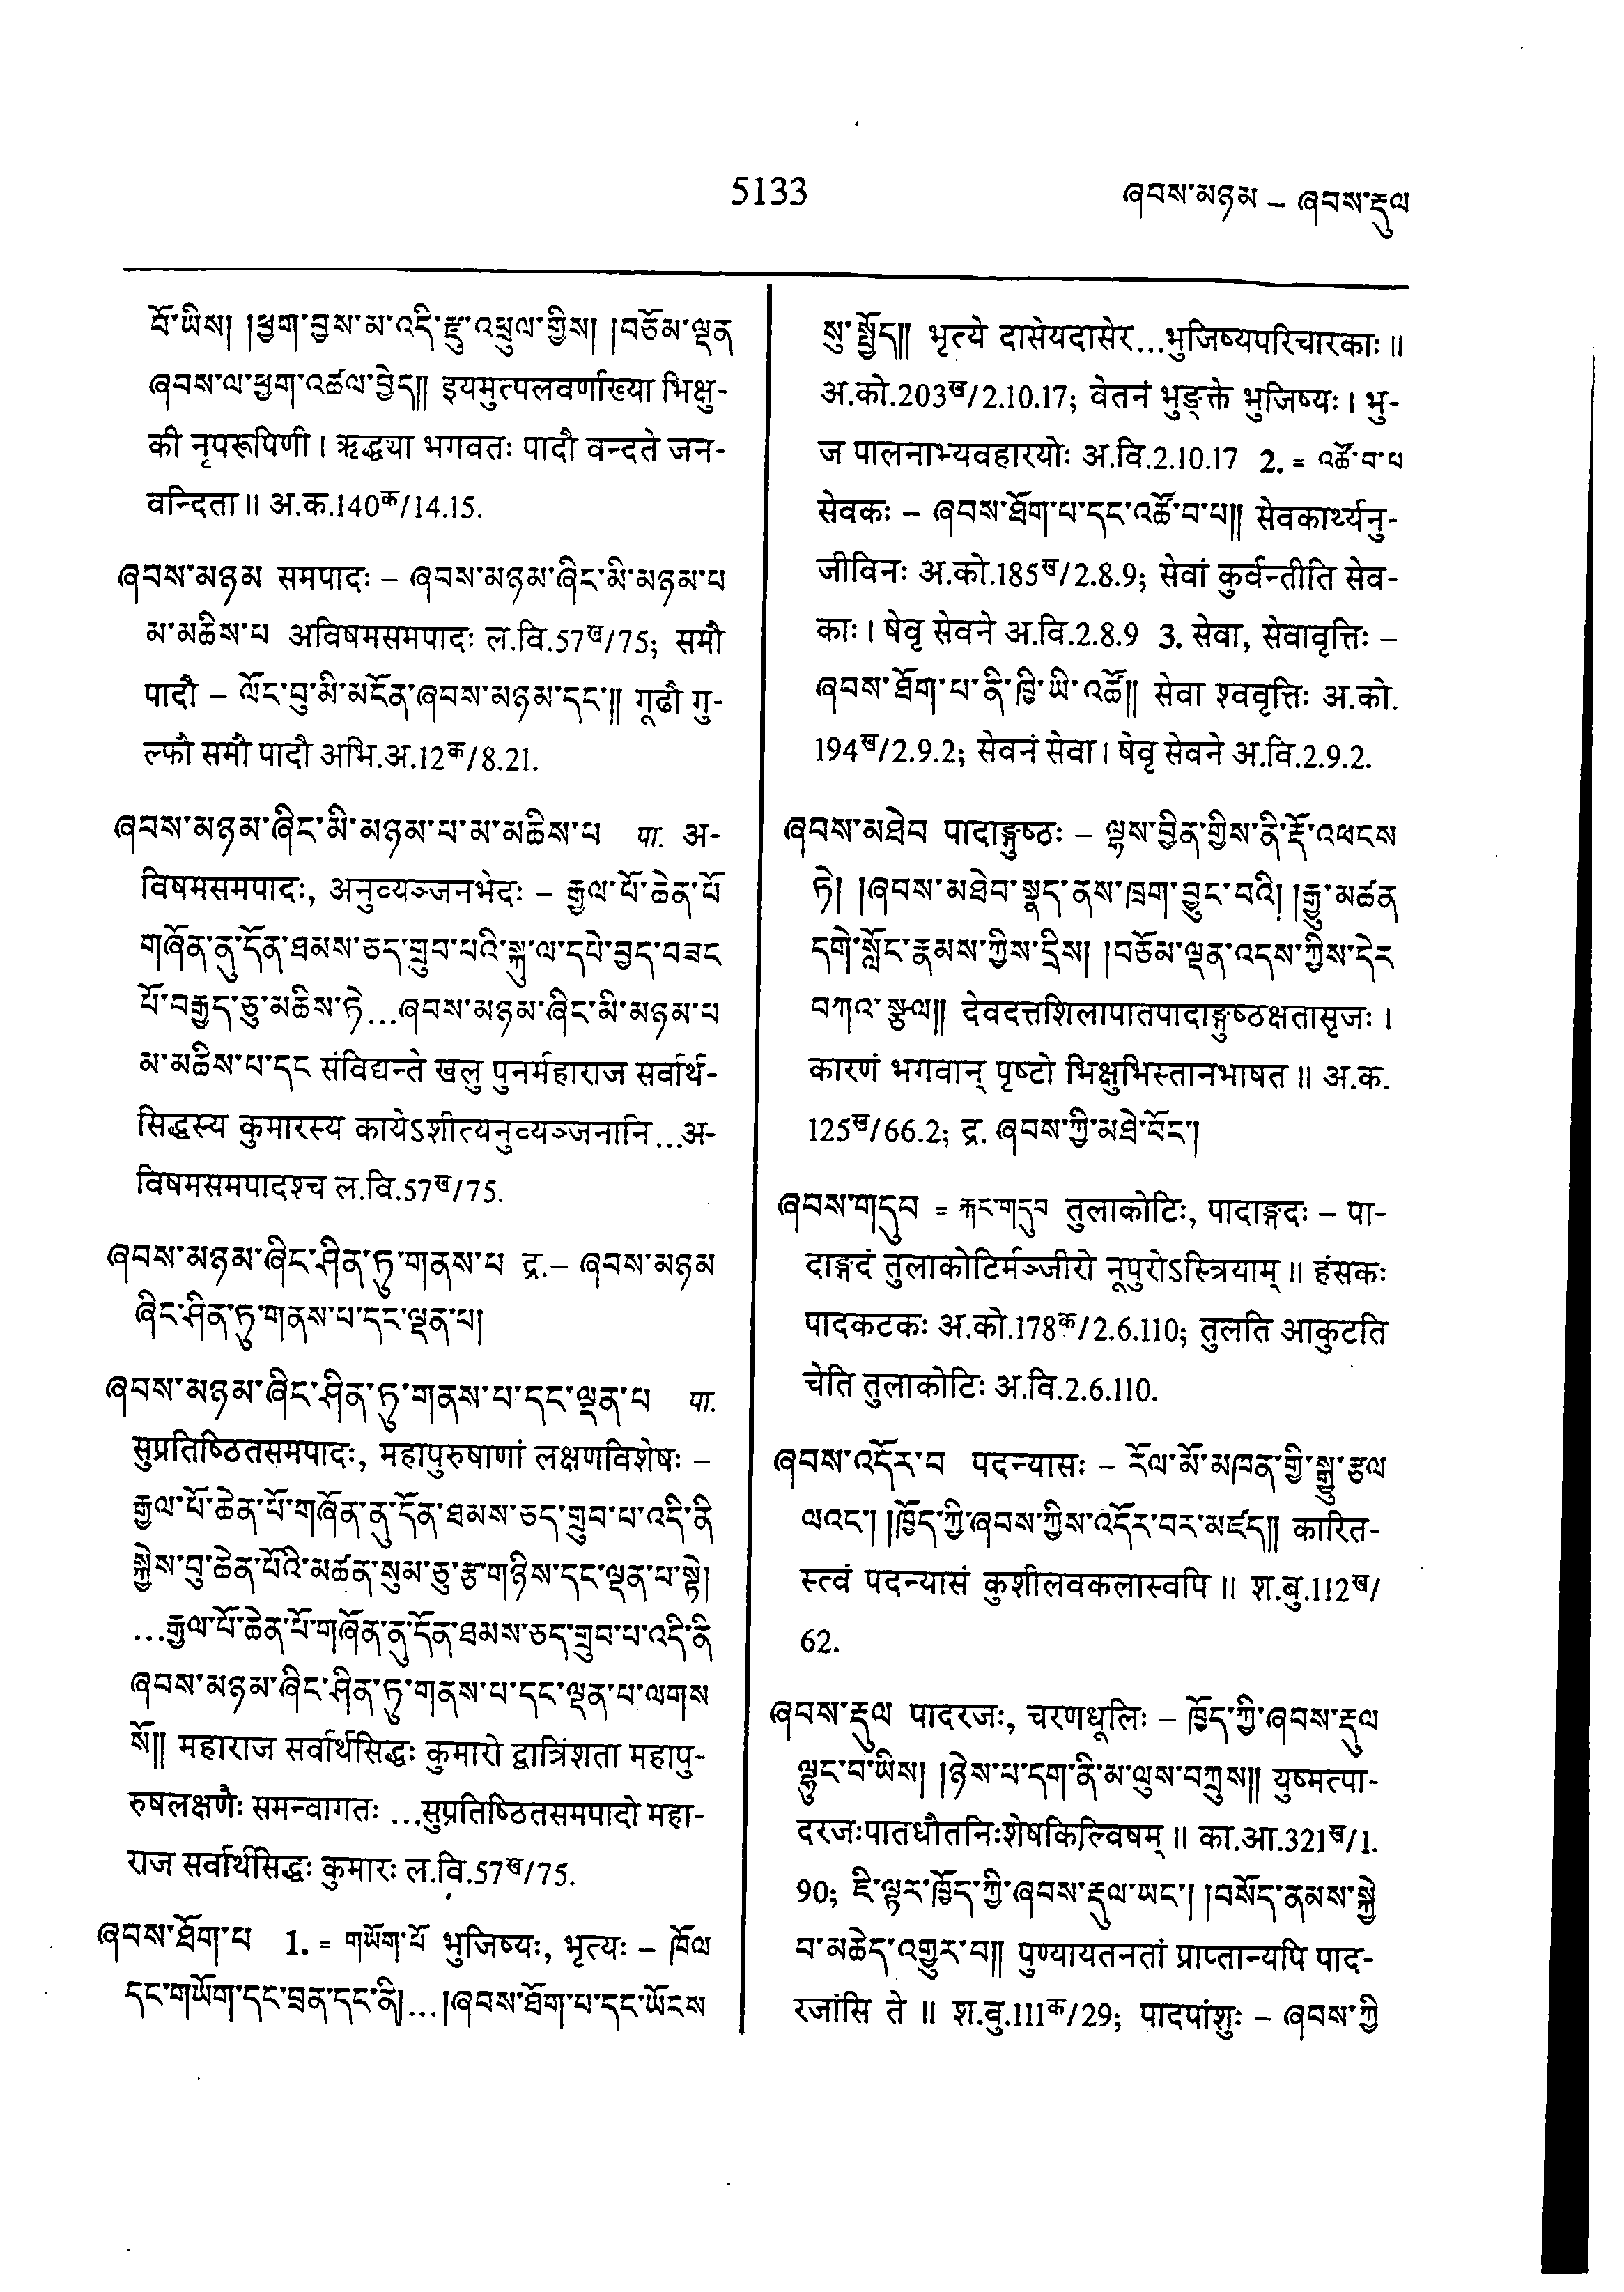 5133
ཞབས་མཉམ – ཞབས་རྡུལ
པོ་ཡིས། །ཕྱག་བྱས་མ་འདི་རྫུ་འཕྲུལ་གྱིས། །བཅོམ་ལྡན
ཞབས་ལ་ཕྱག་འཚལ་བྱེད།། इयमुत्पलवर्णाख्या भिक्षु-
की नृपरूपिणी। ऋद्ध्या भगवतः पादौ वन्दते जन-
वन्दिता॥ अ.क.140क/14.15.
ཞབས་མཉམ समपादः – ཞབས་མཉམ་ཞིང་མི་མཉམ་པ
མ་མཆིས་པ अविषमसमपादः ल.वि.57ख/75; समौ
पादौ – ལོང་བུ་མི་མངོན་ཞབས་མཉམ་དང་།། गूढौ गु-
ल्फौ समौ पादौ अभि.अ.12क/8.21.
ཞབས་མཉམ་ཞིང་མི་མཉམ་པ་མ་མཆིས་པ पा. अ-
विषमसमपादः, अनुव्यञ्जनभेदः – རྒྱལ་པོ་ཆེན་པོ
གཞོན་ནུ་དོན་ཐམས་ཅད་གྲུབ་པའི་སྐུ་ལ་དཔེ་བྱད་བཟང
པོ་བརྒྱད་ཅུ་མཆིས་ཏེ...ཞབས་མཉམ་ཞིང་མི་མཉམ་པ
མ་མཆིས་པ་དང संविद्यन्ते खलु पुनर्महाराज सर्वार्थ-
सिद्धस्य कुमारस्य कायेऽशीत्यनुव्यञ्जनानि...अ-
विषमसमपादश्च ल.वि.57ख/75.
ཞབས་མཉམ་ཞིང་ཤིན་ཏུ་གནས་པ द्र.– ཞབས་མཉམ
ཞིང་ཤིན་ཏུ་གནས་པ་དང་ལྡན་པ།
ཞབས་མཉམ་ཞིང་ཤིན་ཏུ་གནས་པ་དང་ལྡན་པ पा.
सुप्रतिष्ठितसमपादः, महापुरुषाणां लक्षणविशेषः –
རྒྱལ་པོ་ཆེན་པོ་གཞོན་ནུ་དོན་ཐམས་ཅད་གྲུབ་པ་འདི་ནི
སྐྱེས་བུ་ཆེན་པོའི་མཚན་སུམ་ཅུ་རྩ་གཉིས་དང་ལྡན་པ་སྟེ།
...རྒྱལ་པོ་ཆེན་པོ་གཞོན་ནུ་དོན་ཐམས་ཅད་གྲུབ་པ་འདི་ནི
ཞབས་མཉམ་ཞིང་ཤིན་ཏུ་གནས་པ་དང་ལྡན་པ་ལགས
སོ།། महाराज सर्वार्थसिद्धः कुमारो द्वात्रिंशता महापु-
रुषलक्षणैः समन्वागतः ...सुप्रतिष्ठितसमपादो महा-
राज सर्वार्थसिद्धः कुमारः ल.वि.57ख/75.
ཞབས་ཐོག་པ 1. = གཡོག་པོ भुजिष्यः, भृत्यः – ཁོལ
དང་གཡོག་དང་བྲན་དང་ནི།...།ཞབས་ཐོག་པ་དང་ཡོངས
སུ་སྤྱོད།། भृत्ये दासेयदासेर...भुजिष्यपरिचारकाः॥
अ.को.203ख/2.10.17; वेतनं भुङ्क्ते भुजिष्यः। भु-
ज पालनाभ्यवहारयोः अ.वि.2.10.17 2. = འཚོ་བ་པ
सेवकः – ཞབས་ཐོག་པ་དང་འཚོ་བ་པ།། सेवकार्थ्यनु-
जीविनः अ.को.185ख/2.8.9; सेवां कुर्वन्तीति सेव-
काः। षेवृ सेवने अ.वि.2.8.9 3. सेवा, सेवावृत्तिः –
ཞབས་ཐོག་པ་ནི་ཁྱི་ཡི་འཚོ།། सेवा श्ववृत्तिः अ.को.
194ख/2.9.2; सेवनं सेवा। षेवृ सेवने अ.वि.2.9.2.
ཞབས་མཐེབ पादाङ्गुष्ठः – ལྷས་བྱིན་གྱིས་ནི་རྡོ་འཕངས
ཏེ། །ཞབས་མཐེབ་སྣད་ནས་ཁྲག་བྱུང་བའི། །རྒྱུ་མཚན
དགེ་སློང་རྣམས་ཀྱིས་དྲིས། །བཅོམ་ལྡན་འདས་ཀྱིས་དེར
བཀའ་སྩལ།། देवदत्तशिलापातपादाङ्गुष्ठक्षतासृजः।
कारणं भगवान् पृष्टो भिक्षुभिस्तानभाषत॥ अ.क.
125ख/66.2; द्र. ཞབས་ཀྱི་མཐེ་བོང་།
ཞབས་གདུབ = རྐང་གདུབ तुलाकोटिः, पादाङ्गदः – पा-
दाङ्गदं तुलाकोटिर्मञ्जीरो नूपुरोऽस्त्रियाम्॥ हंसकः
पादकटकः अ.को.178क/2.6.110; तुलति आकुटति
चेति तुलाकोटिः अ.वि.2.6.110.
ཞབས་འདོར་བ पदन्यासः – རོལ་མོ་མཁན་གྱི་སྒྱུ་རྩལ
ལའང་། །ཁྱོད་ཀྱི་ཞབས་ཀྱིས་འདོར་བར་མཛད།། कारित-
स्त्वं पदन्यासं कुशीलवकलास्वपि॥ श.बु.112ख/
62.
ཞབས་རྡུལ पादरजः, चरणधूलिः – ཁྱོད་ཀྱི་ཞབས་རྡུལ
ལྷུང་བ་ཡིས། །ཉེས་པ་དག་ནི་མ་ལུས་བཀྲུས།། युष्मत्पा-
दरजःपातधौतनिःशेषकिल्विषम्॥ का.आ.321ख/1.
90; ཇི་ལྟར་ཁྱོད་ཀྱི་ཞབས་རྡུལ་ཡང་། །བསོད་ནམས་སྐྱེ
བ་མཆེད་འགྱུར་བ།། पुण्यायतनतां प्राप्तान्यपि पाद-
रजांसि ते॥ श.बु.111क/29; पादपांशुः – ཞབས་ཀྱི